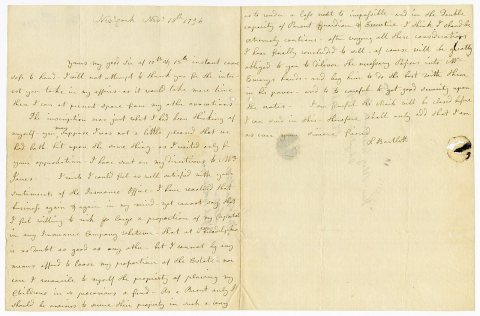 New York Nov. 18th
Yours my good Sir of 12th & 15th instant came
safe to hand. I will not attempt to thank you for the inter
est you take in my affairs as it would take more time
than I can at present spare from my other avocations
The inscription was just what I had been thinking of
myself. you suppose I was not a little pleased that we
had both hit upon the same thing as I waited only for
your approbation. I have sent on my directions to Mr
Jones. I wish I could feel as well satisfied with your
sentiments of the Insurance Office. I have resolved that
business again & again in my mind yet cannot say that
I feel willing to risk so large a proportion of my Capital
in any Insurance Company whatever. that at Philadelphia
is no doubt as good as any other but I cannot by any
means afford to loose my proportion of the Estate nor
can I reconcile to myself the propriety of placing my
Childrens in so precarious a fund. As a Parent only I
should be anxious to secure their property in such a way
as to render a Loss next to impossible and in the double
capacity of Parent Guardian & Executrix I think I should be
extremely cautious. after weighing all these considerations
I have finally concluded to sell. of course will be greatly
obliged to you to deliver the necessary Papers into Mr
hands and beg him to do the best with them
in his power and to be careful to get good security upon
the notes. I am fearful the Mail will be closed before
I can send in this therefore shall only add that I am
as ever your Sincere Friend
Bartlett